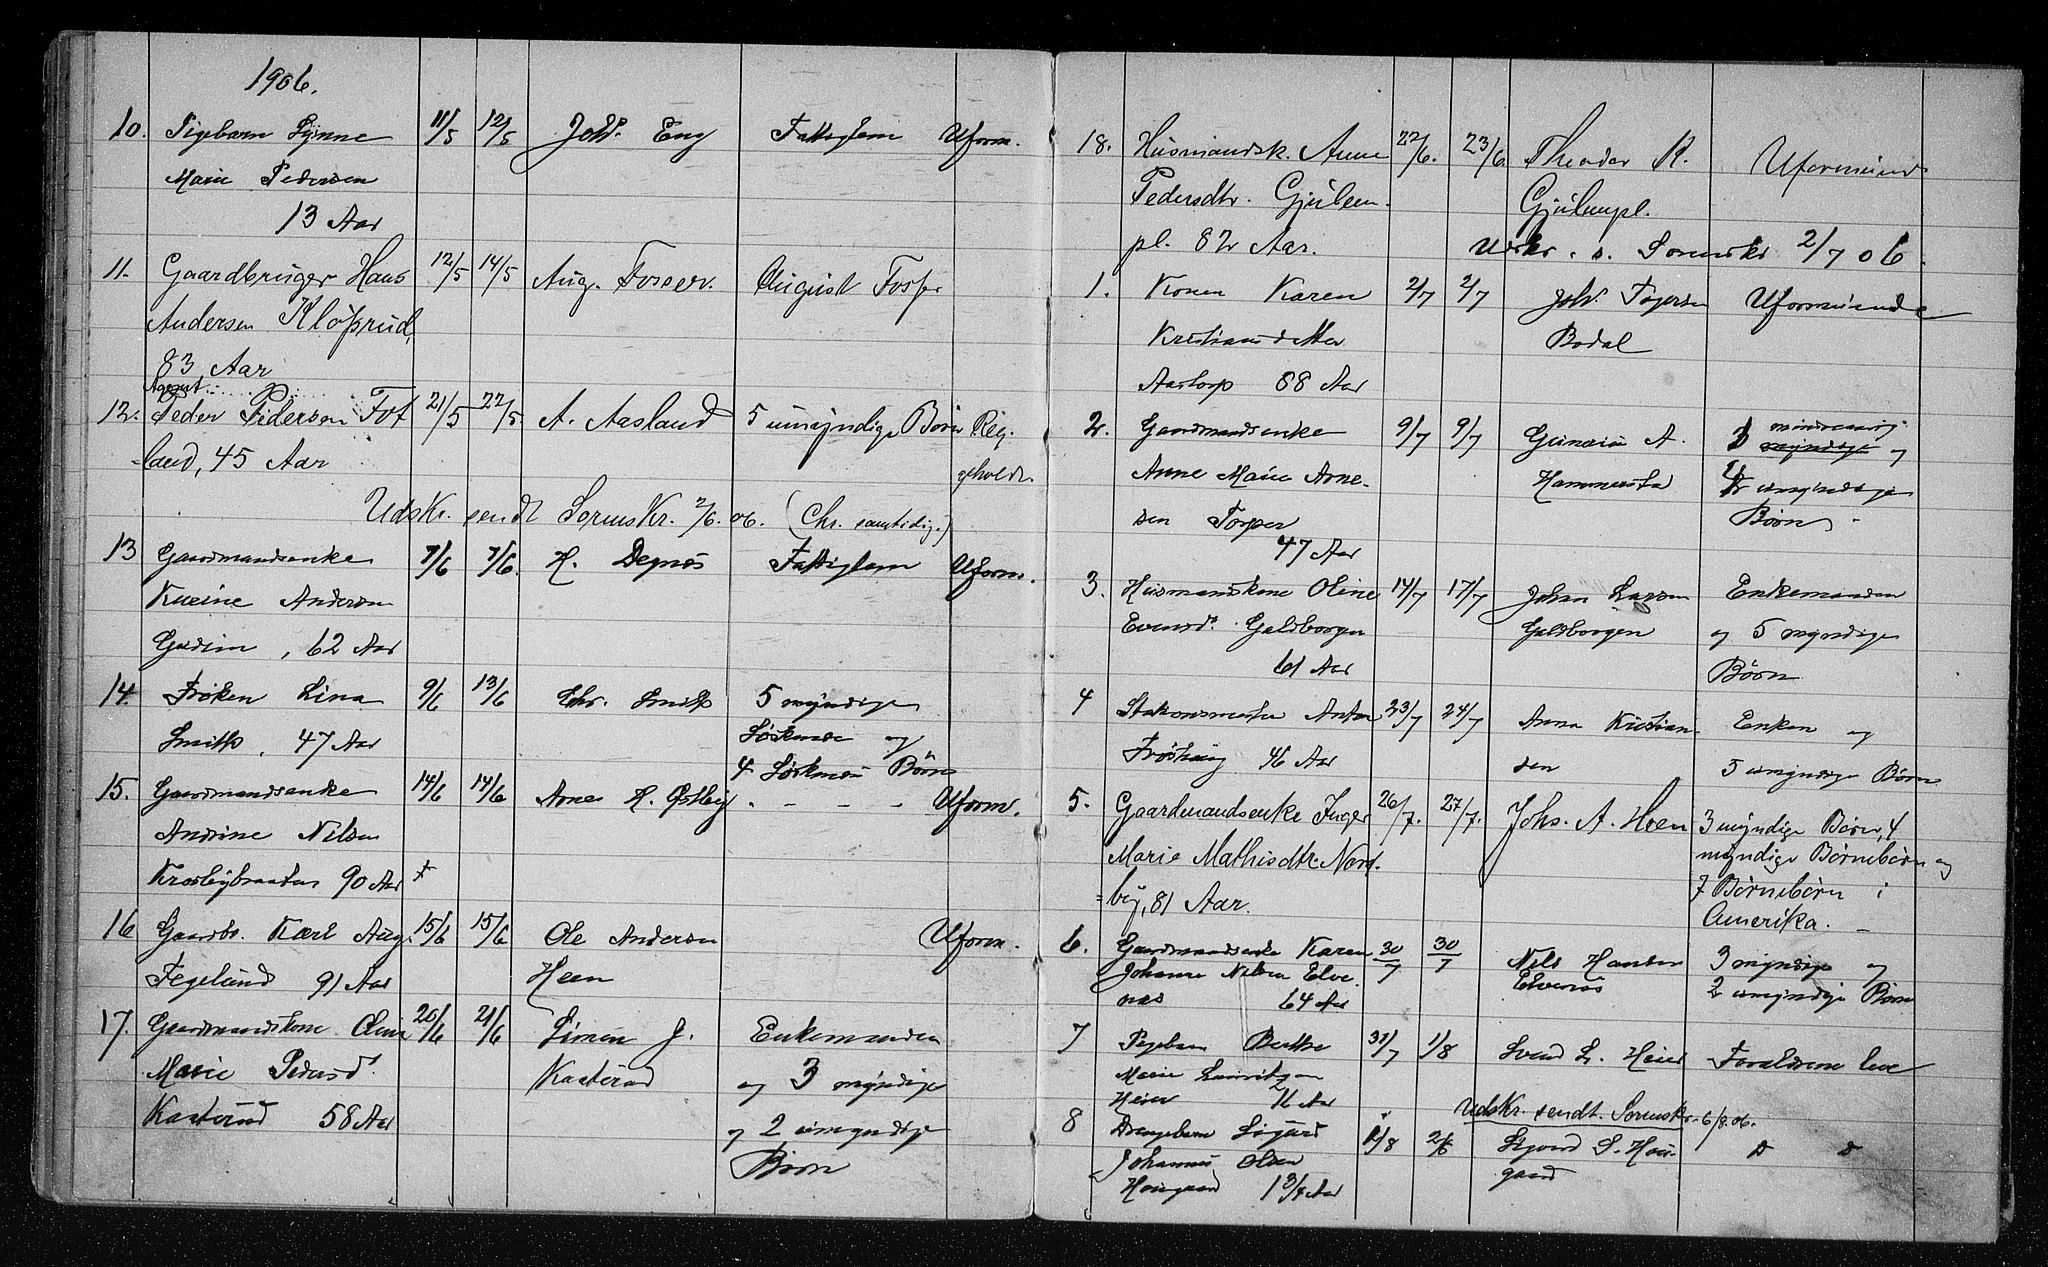 1906.
10. Pigebarn Synne 11/5 12/5 Joh. Eng Fattiglem Uform.
Marie Pedersen
13 Aar
11. Gaardbruger Hans 12/5 14/5 Aug. Fosser. August Fosser
Andersen Kloprud,
83 Aar
Agent
12. Peder Pedersen Fos 21/5 22/5. A. Aasland 5 umyndige Børn Reg.
land, 45 Aar afholdt.
Udskr. sendt Sorenskr. 2/6.06. (Chr. samtidig.)
13 Gaardmandsenke 7/6 7/6. H. Degnæs Fattiglem Uform.
Karine Andersen
62 Aar
14. Frøken Lina 9/6 13/6 Chr. Smith 5 myndige
Smith, 47 Aar Søskende og
4 Søskende Børn
15. Gaardmandsenke 14/6 14/6 Arne H. Østby - - - - Uform.
Andrine Nilsen
Krosbybraaten 90 Aar +
16 Gaardbr. Karl Aug. 15/6 15/6 Ole Andersen Uform.
Fegelund 91 Aar Heen
17. Gaardmandskone Olina 20/6 21/6 Simen J. Enkemanden
Marie Pedersd. Kaaterud og 3 myndige
Kaaterud 58 Aar og 2 umyndige
Børn
18. Husmandsk. Anne 22/6. 23/6. Theodor K. Uformuend
Pedersdtr. Gjulem Gjulempl.
pl. 82 Aar. Udskr. s. Sorenskr 2/7 06.
1. Konen Karen 2/7 2/7 Joh. Fagersen Uformuende
Kristiansdatter Bodal
Aastorp 88 Aar
2. Gaardmandsenke 9/7 9/7 Gunerius A. mindreaarig
Anne Marie Arne- Hammerstad 3 myndige og
sen Torper 4 umyndige
47 Aar Børn
3. Husmandskone Oline 14/7 17/7 Johan Larsen Enkemanden
Evensd. Galdborgen Galdborgen og 5 myndige
61 Aar Børn
4 Stationsmester Anton 23/7 24/7 Anna Kristian Enken og
Frøshaug 46 Aar sen 5 umyndige Børn
5. Gaardmandsenke Inger 26/7. 27/7. Johs. A. Heen 3 myndige Børn, 4
Marie Mathisdtr. Nord- myndige Børnebørn og
=by, 81 Aar. 7 Børnebørn i
Amerika.
6. Gaardmandsenke Karen 30/7 30/7 Nils Hansen 3 myndige og
Johanne Nilsen Elve Elvenæs 2 umyndige Børn
næs 64 Aar
7 Pigebarn Berthe 31/7 1/8 Svend L. Heier Forældrene leve
Marie Lauritzen
Heier Aar
Udskr. sendt. Sorenskr. 6/8.06.
8 Drengebarn Sigurd 1/8 2/8 Sigvard S. Hau- D D
Johannes Olsen gaard
Haugaard 1 3/4 Aar